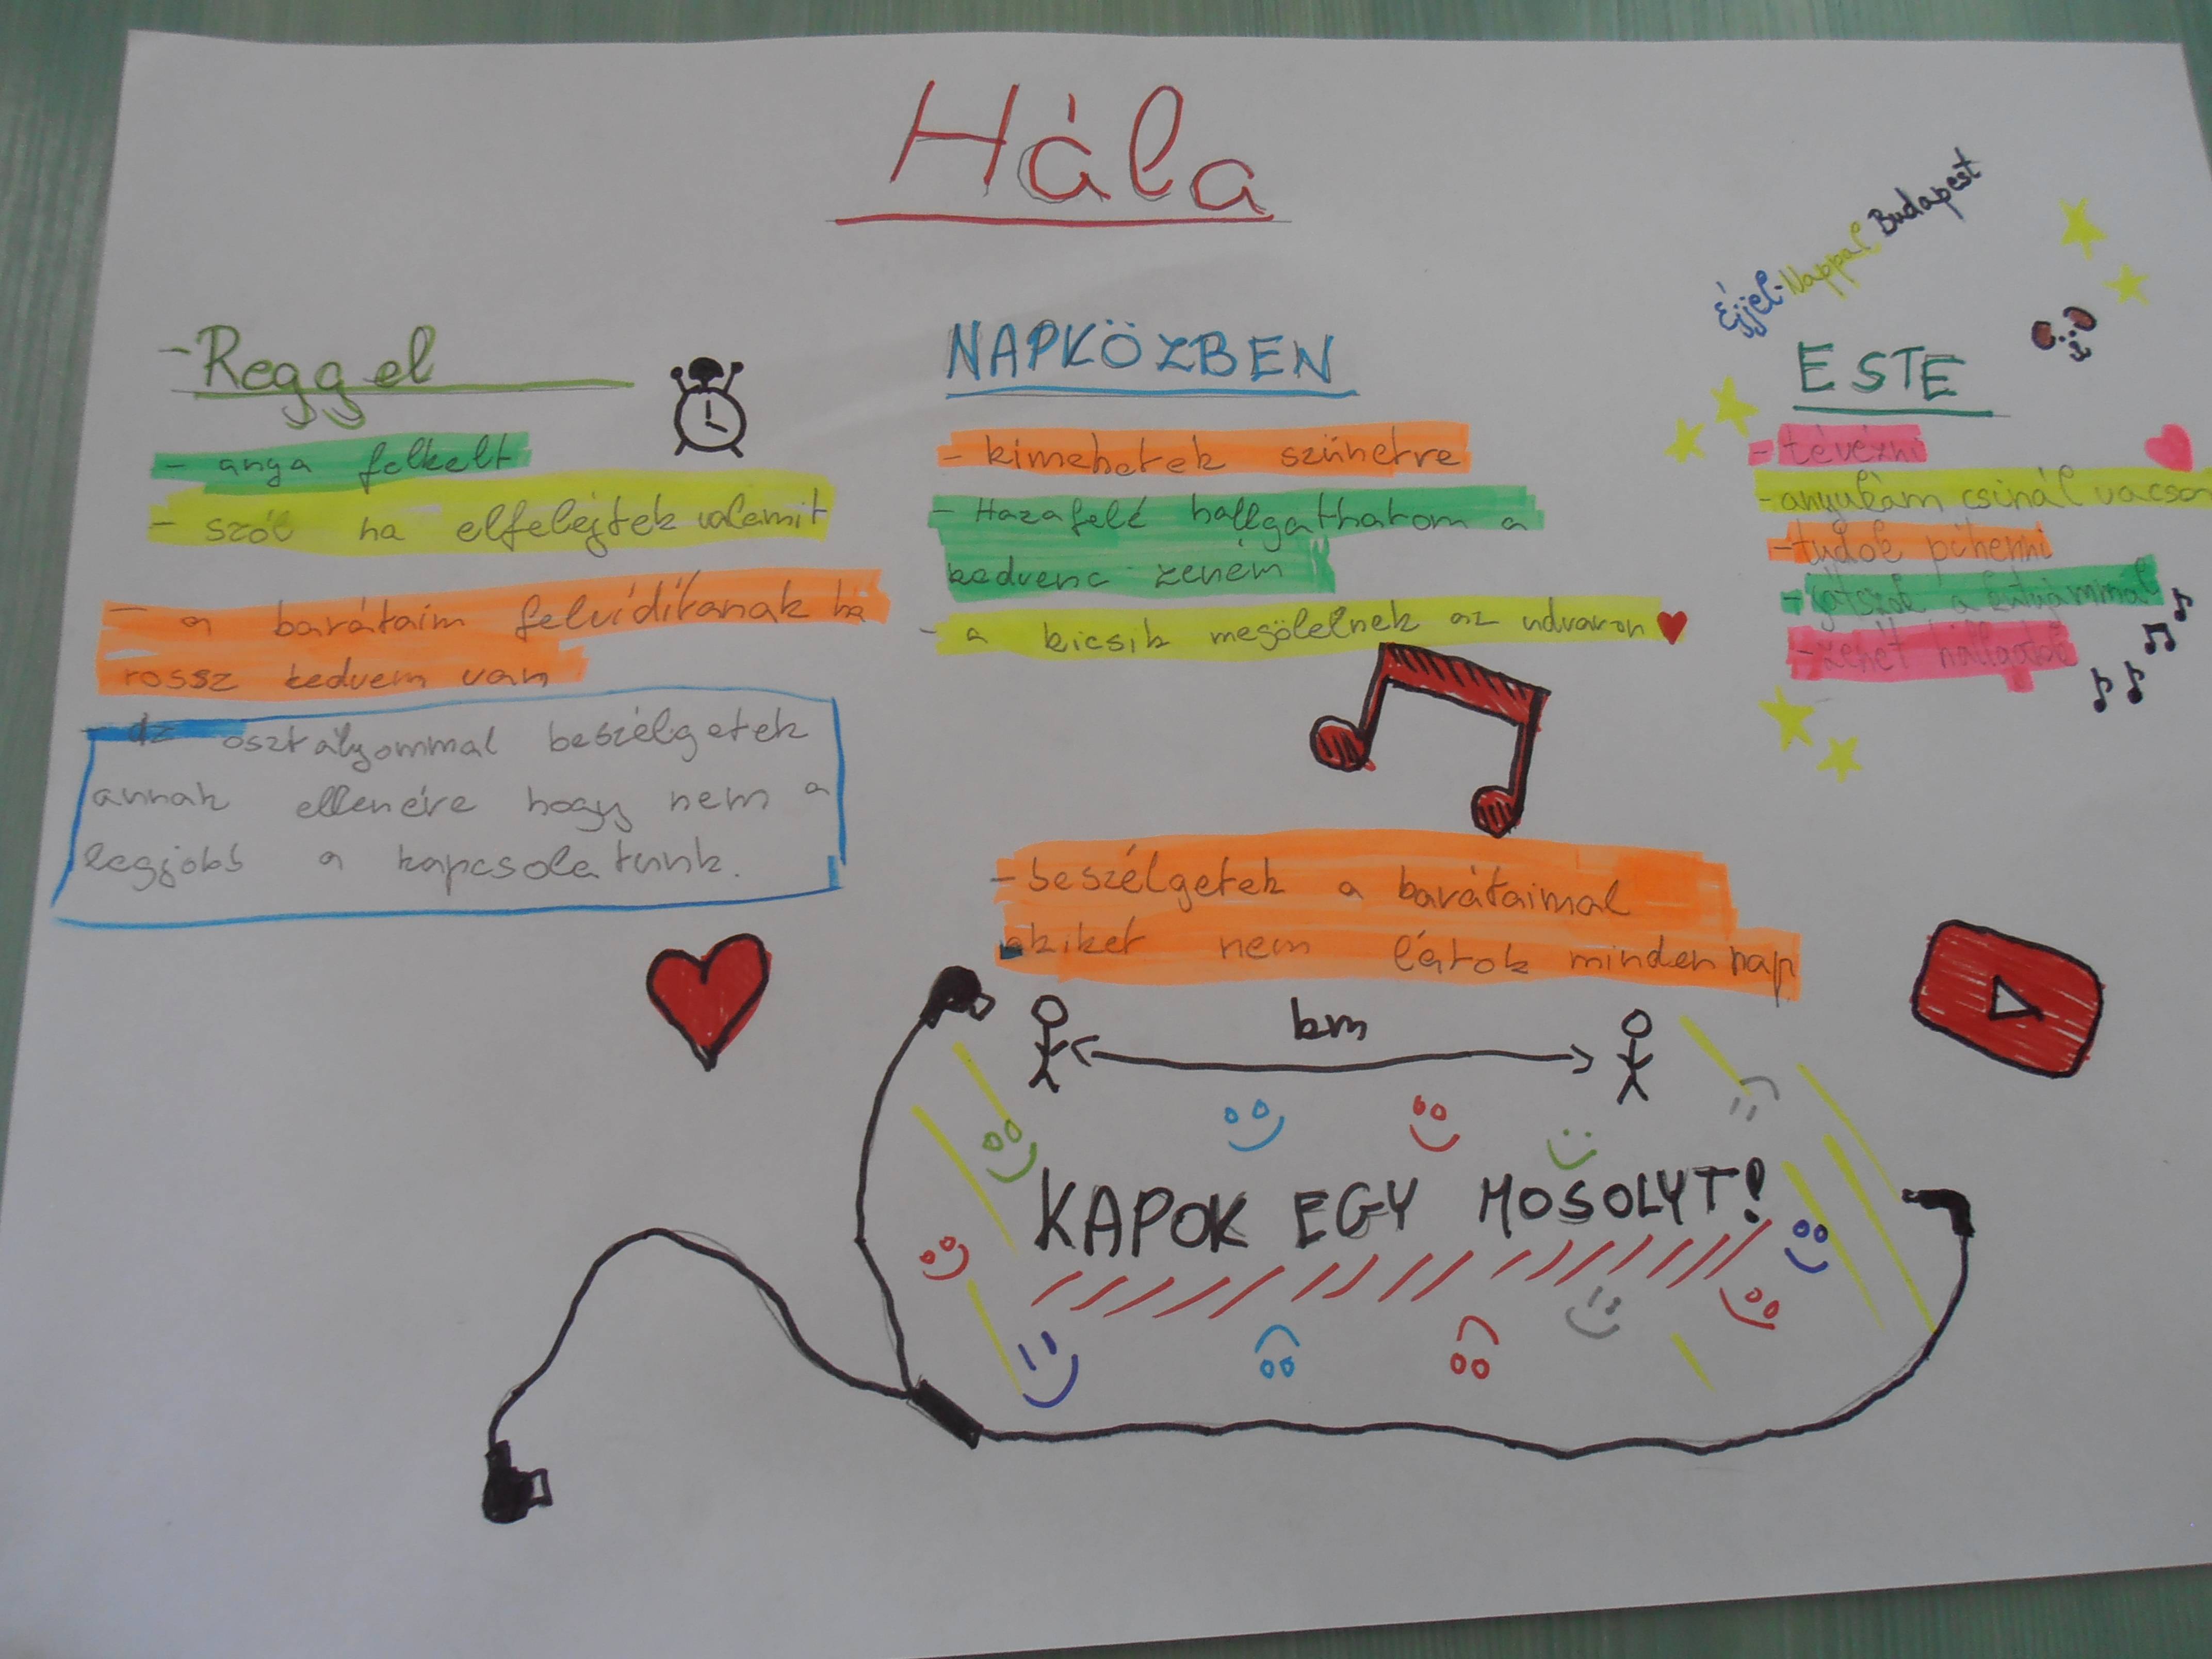 Hála
-Reggel
- anya felkelt
- szól ha elfelejtek valamit
- a barátaim felvidítanak ha
rossz kedvem van
- Az osztályommal beszélgetek
annak ellenére hogy nem a
legjobb a kapcsolatunk.
NAPKÖZBEN
- kimehetek szünetre
- Hazafelé hallgathatom a
kedvenc zeném
- a kicsik megölelnek az udvaron
- beszélgetek a barátaimal
akiket nem látok minden nap
km
KAPOK EGY MOSOLYT!
Éjjel-Nappal Budapest
ESTE
- tévézni
-anyukám csinál vacsor
-tudok pihenni
- játszok a kutyámmal
-zenét hallgatok